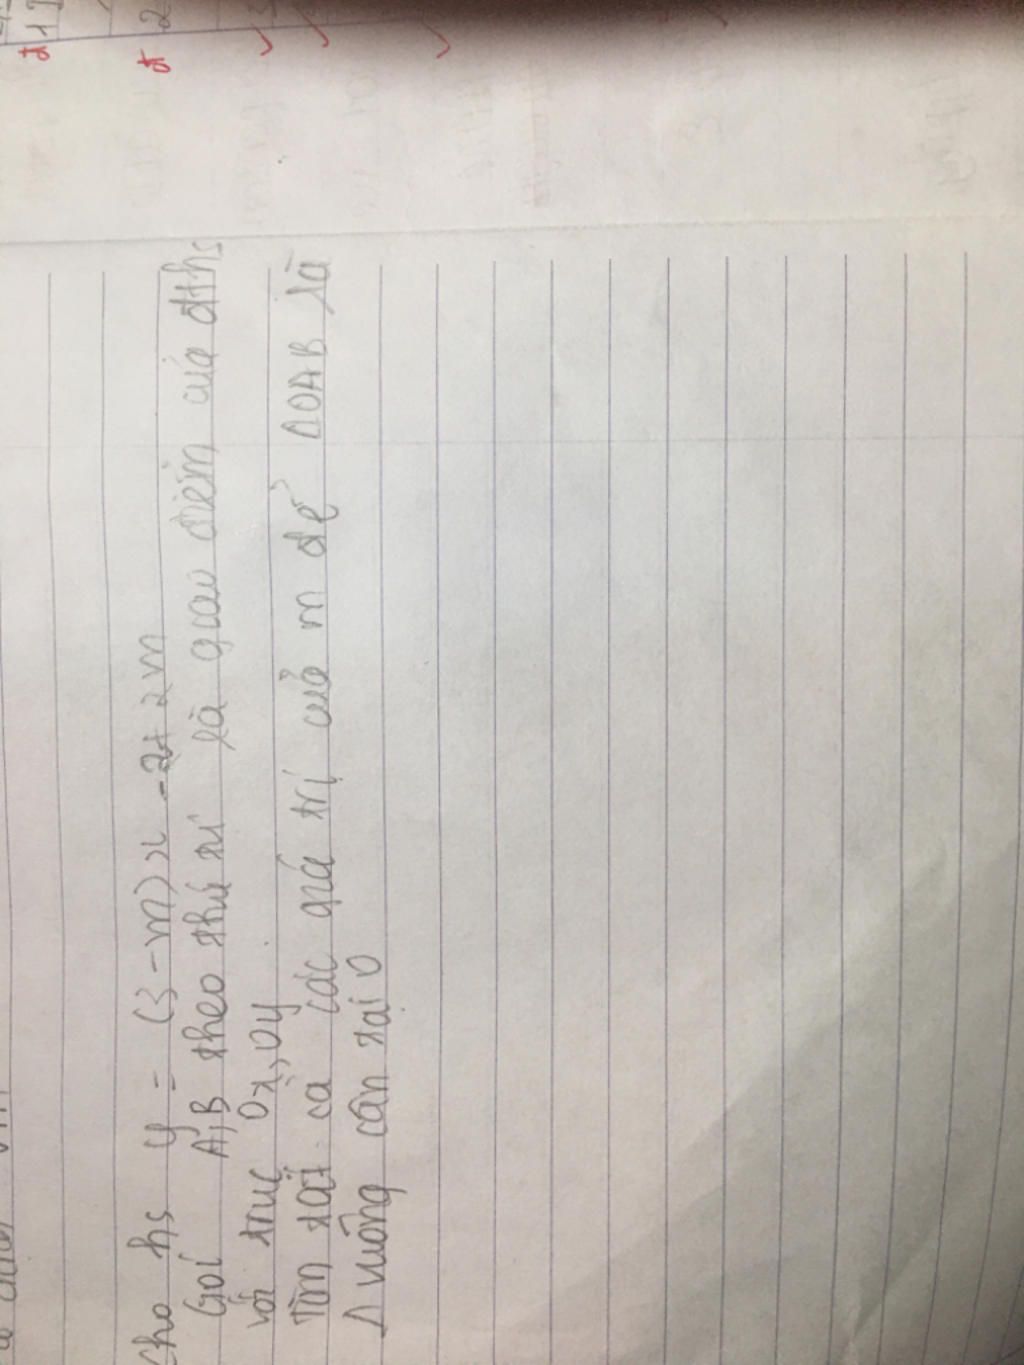 Cho hs y = (3-m)x -2+2m
Gọi A,B theo thứ tự là giao điểm của đths
với trục Ox, Oy
Tìm tất cả các giá trị của m để ΔOAB là
Δ vuông cân tại O